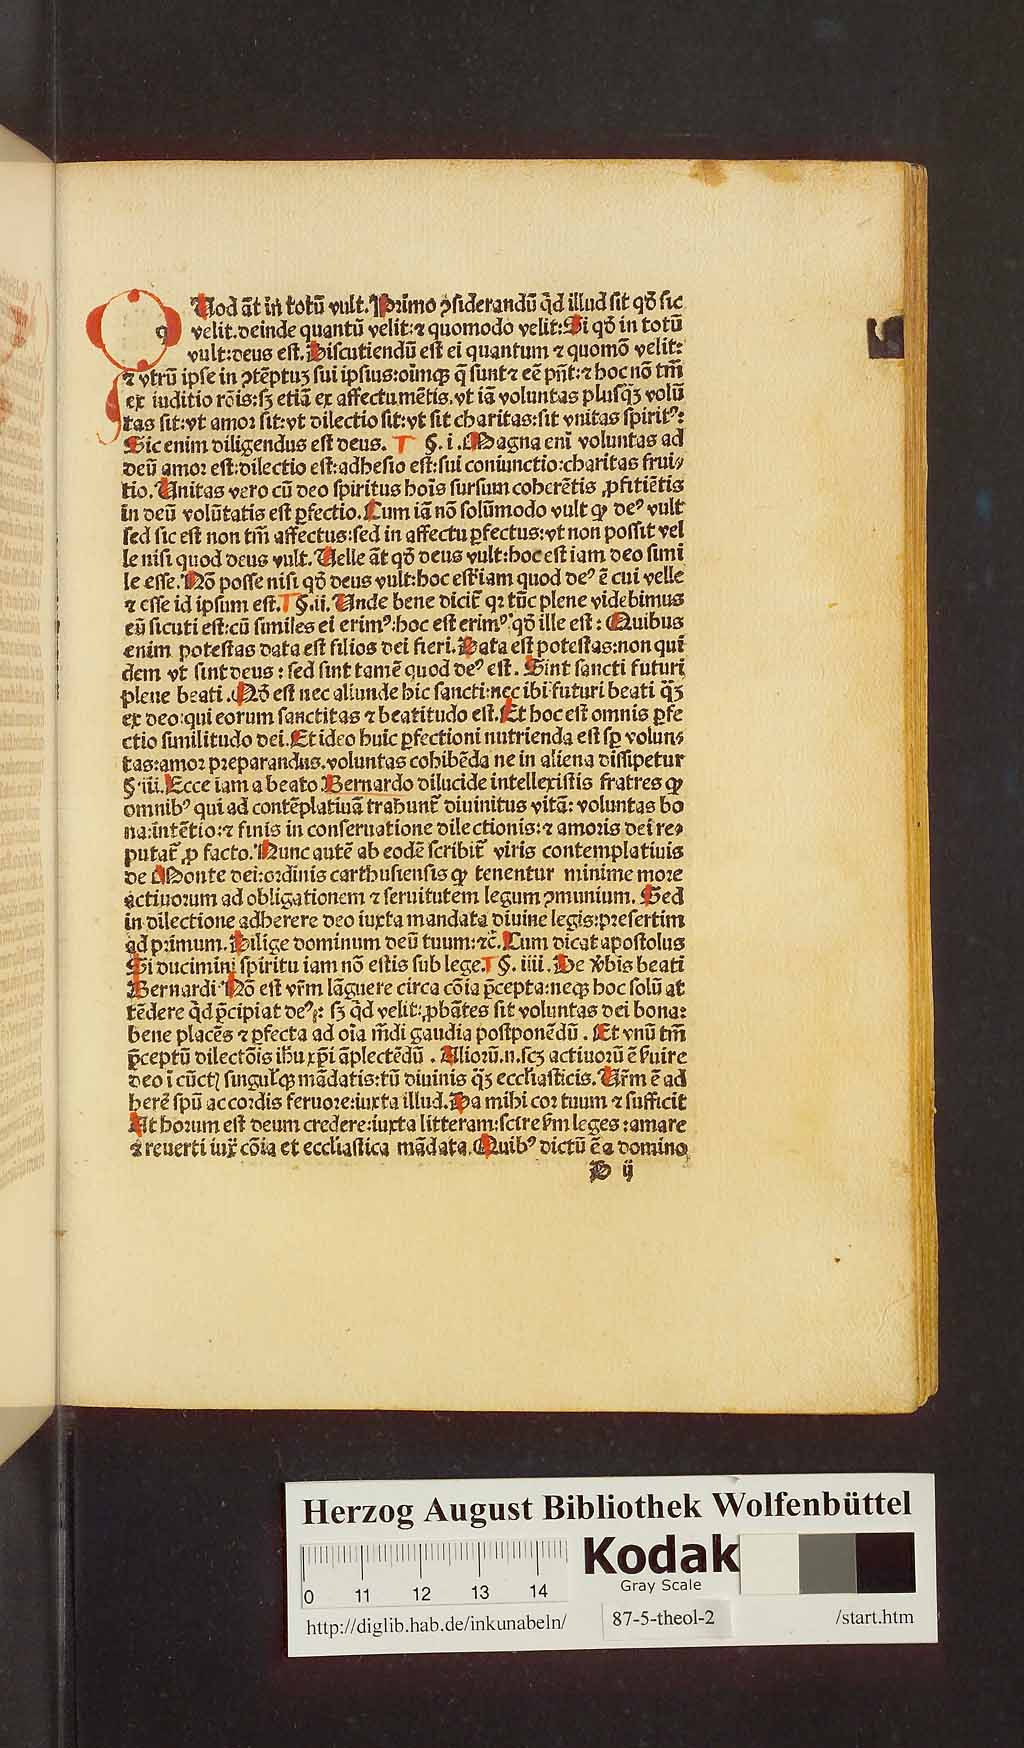 Uod āt in totū vult. Primo ꝯsiderandū qͥd illud sit qđ sic
q velit. deinde quantū velit: ⁊ quomodo velit: Si qđ in totū
vult: deus est. Discutiendū est ei quantum ⁊ quomō velit:
⁊ vtrū ipse in ꝯtēptuꝫ sui ipsius: oīmqꝫ q̄ sunt ⁊ eē pn̄t: ⁊ hoc nō tm̄
ex iuditio rōis: sꝫ etiā ex affectu mētis. vt iā voluntas plusqꝫ volū
tas sit: vt amor sit: vt dilectio sit: vt sit charitas: sit vnitas spiritꝰ:
Sic enim diligendus est deus. §. i. Magna enī voluntas ad
deū amor est: dilectio est: adhesio est: sui coniunctio: charitas frui⸗
tio. Unitas vero cū deo spiritus hoīs sursum coherētis ꝓfitiētis
in deū volūtatis est ꝑfectio. Cum iā nō solūmodo vult ꝙ deꝰ vult
sed sic est non tm̄ affectus: sed in affectu ꝑfectus: vt non possit vel
le nisi quod deus vult. Uelle āt qđ deus vult: hoc est iam deo simi
le esse. Nō posse nisi qđ deus vult: hoc est iam quod deꝰ ē cui velle
⁊ esse id ipsum est. §. ii. Unde bene dicit̄ qꝛ tūc plene videbimus
eū sicuti est: cū similes ei erimꝰ: hoc est erimꝰ qđ ille est: Quibus
enim potestas data est filios dei fieri. Data est potestas: non qui
dem vt sint deus: sed sint tamē quod deꝰ est. Sint sancti futuri
plene beati. Nō est nec aliunde hic sancti: nec ibi futuri beati qꝫ
ex deo: qui eorum sanctitas ⁊ beatitudo est. Et hoc est omnis ꝑfe
ctio similitudo dei. Et ideo huic ꝑfectioni nutrienda est sꝑ volun⸗
tas: amor preparandus. voluntas cohibēda ne in aliena dissipetur
§. iii. Ecce iam a beato Bernardo dilucide intellexistis fratres ꝙ
omnibꝰ qui ad contēplatiuā trahunt̄ diuinitus vitā: voluntas bo
na: intētio: ⁊ finis in conseruatione dilectionis: ⁊ amoris dei re⸗
putat̄ ꝓ facto. Nunc autē ab eodē scribit̄ viris contemplatiuis
de Monte dei: ordinis carthusiensis ꝙ tenentur minime more
actiuorum ad obligationem ⁊ seruitutem legum ꝯmunium. Sed
in dilectione adherere deo iuxta mandata diuine legis: presertim
ad primum. Dilige dominum deū tuum: ⁊c̄. Cum dicat apostolus
Si ducimini spiritu iam nō estis sub lege. §. iiii. De v̄bis beati
Bernardi Nō est vr̄m lāguere circa cōia p̄cepta: neqꝫ hoc solū at
tēdere qͥd p̄cipiat deꝰ: sꝫ qͥd velit: ꝓbātes sit voluntas dei bona:
bene placēs ⁊ ꝑfecta ad oīa mūdi gaudia postponēdū. Et vnū tm̄
p̄ceptū dilectōis ihu xp̄i āplectēdū. Aliorū. n. scꝫ actiuorū ē ẜuire
deo ī cūctꝭ singulqꝫ mādatis: tū diuinis qꝫ eccl̄iasticis. Ur̄m ē ad
herē spū ac cordis feruore: iuxta illud. Da mihi cor tuum ⁊ sufficit
At horum est deum credere: iuxta litteram: scire ẜm leges: amare
⁊ reuerti iux̄ cōia et eccl̄iastica mādata. Quibꝰ dictū ē a domino
D ij
Herzog August Bibliothek Wolfenbüttel
0 11 12 13 14
Kodak
Gray Scale
http://diglib.hab.de/inkunabeln/ 87-5-theol-2 /start.htm